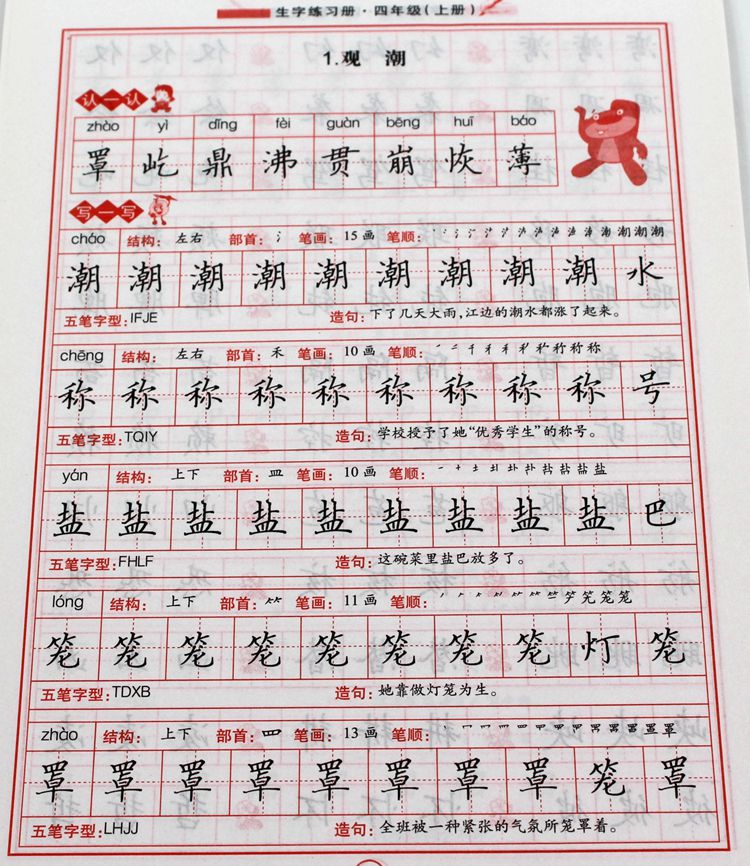 生字练习册·四年级(上册)
1.观 潮
认一认
zhào yì dǐng fèi guàn bēng huī báo
罩 屹 鼎 沸 贯 崩 恢 薄
写一写
cháo 结构: 左右 部首: 氵 笔画: 15画 笔顺:
潮 潮 潮 潮 潮 潮 潮 潮 潮 水
五笔字型:IFJE 造句:下了几天大雨,江边的潮水都涨了起来。
chēng 结构: 左右 部首: 禾 笔画: 10画 笔顺:
称 称 称 称 称 称 称 称 称 号
五笔字型:TQIY 造句:学校授予了她“优秀学生”的称号。
yán 结构: 上下 部首: 皿 笔画: 10画 笔顺:
盐 盐 盐 盐 盐 盐 盐 盐 盐 巴
五笔字型:FHLF 造句:这碗菜里盐巴放多了。
lóng 结构: 上下 部首: ⺮ 笔画: 11画 笔顺:
笼 笼 笼 笼 笼 笼 笼 笼 灯 笼
五笔字型:TDXB 造句:她靠做灯笼为生。
zhào 结构: 上下 部首: 罒 笔画: 13画 笔顺:
罩 罩 罩 罩 罩 罩 罩 罩 笼 罩
五笔字型:LHJJ 造句:全班被一种紧张的气氛所笼罩着。